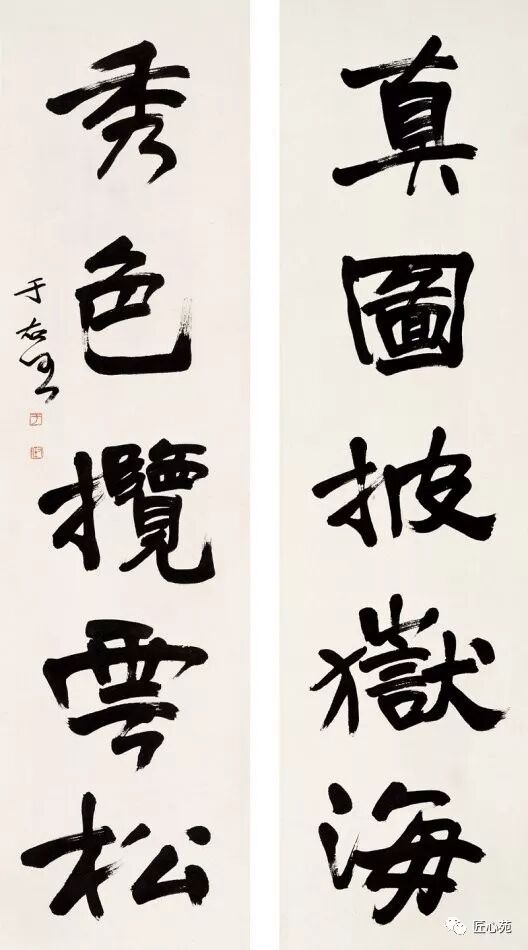 真圖披嶽海
秀色攬雲松
于右任
匠心苑